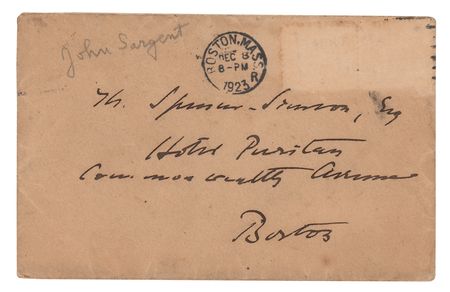 John Sargent
BOSTON, MASS.
DEC 8
8-PM
1923
R
Spencer-Simson, Esq
Hotel Puritan
Commonwealth Avenue
Boston